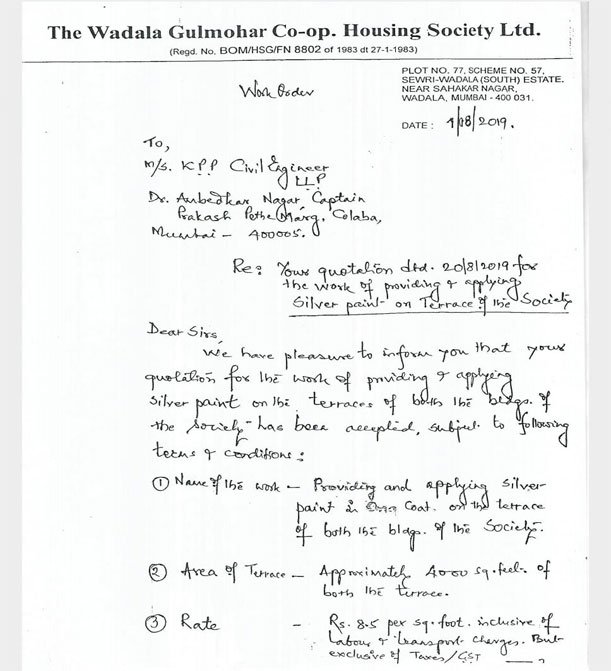 The Wadala Gulmohar Co-op. Housing Society Ltd.
(Regd. No. BOM/HSG/FN 8802 of 1983 dt 27-1-1983)
PLOT NO. 77, SCHEME NO. 57,
SEWRI-WADALA (SOUTH) ESTATE.
NEAR SAHAKAR NAGAR,
WADALA, MUMBAI - 400 031.
Work Order
DATE : /08/2019.
To,
M/s. KPP Civil Engineer
LLP
Dr. Ambedkar Nagar, Captain
Prakash Pethe Marg, Colaba,
Mumbai - 400005.
Re: Your quotation dtd. 20/8/2019 for
the work of providing & applying
Silver paint on Terrace of the Society
Dear Sirs,
We have pleasure to inform you that your
quotation for the work of providing & applying
Silver paint on the terraces of both the bldgs. of
the Society has been accepted, subject to following
terms & conditions :
① Name of the work - Providing and applying silver
paint in One Coat. on the terrace
of both the bldgs. of the Society.
② Area of Terrace - Approximately 4000 sq.feet of
both the terrace.
③ Rate - Rs. 8.5 per sq.foot. inclusive of
Labour & transport charges. But
exclusive of Taxes/GST